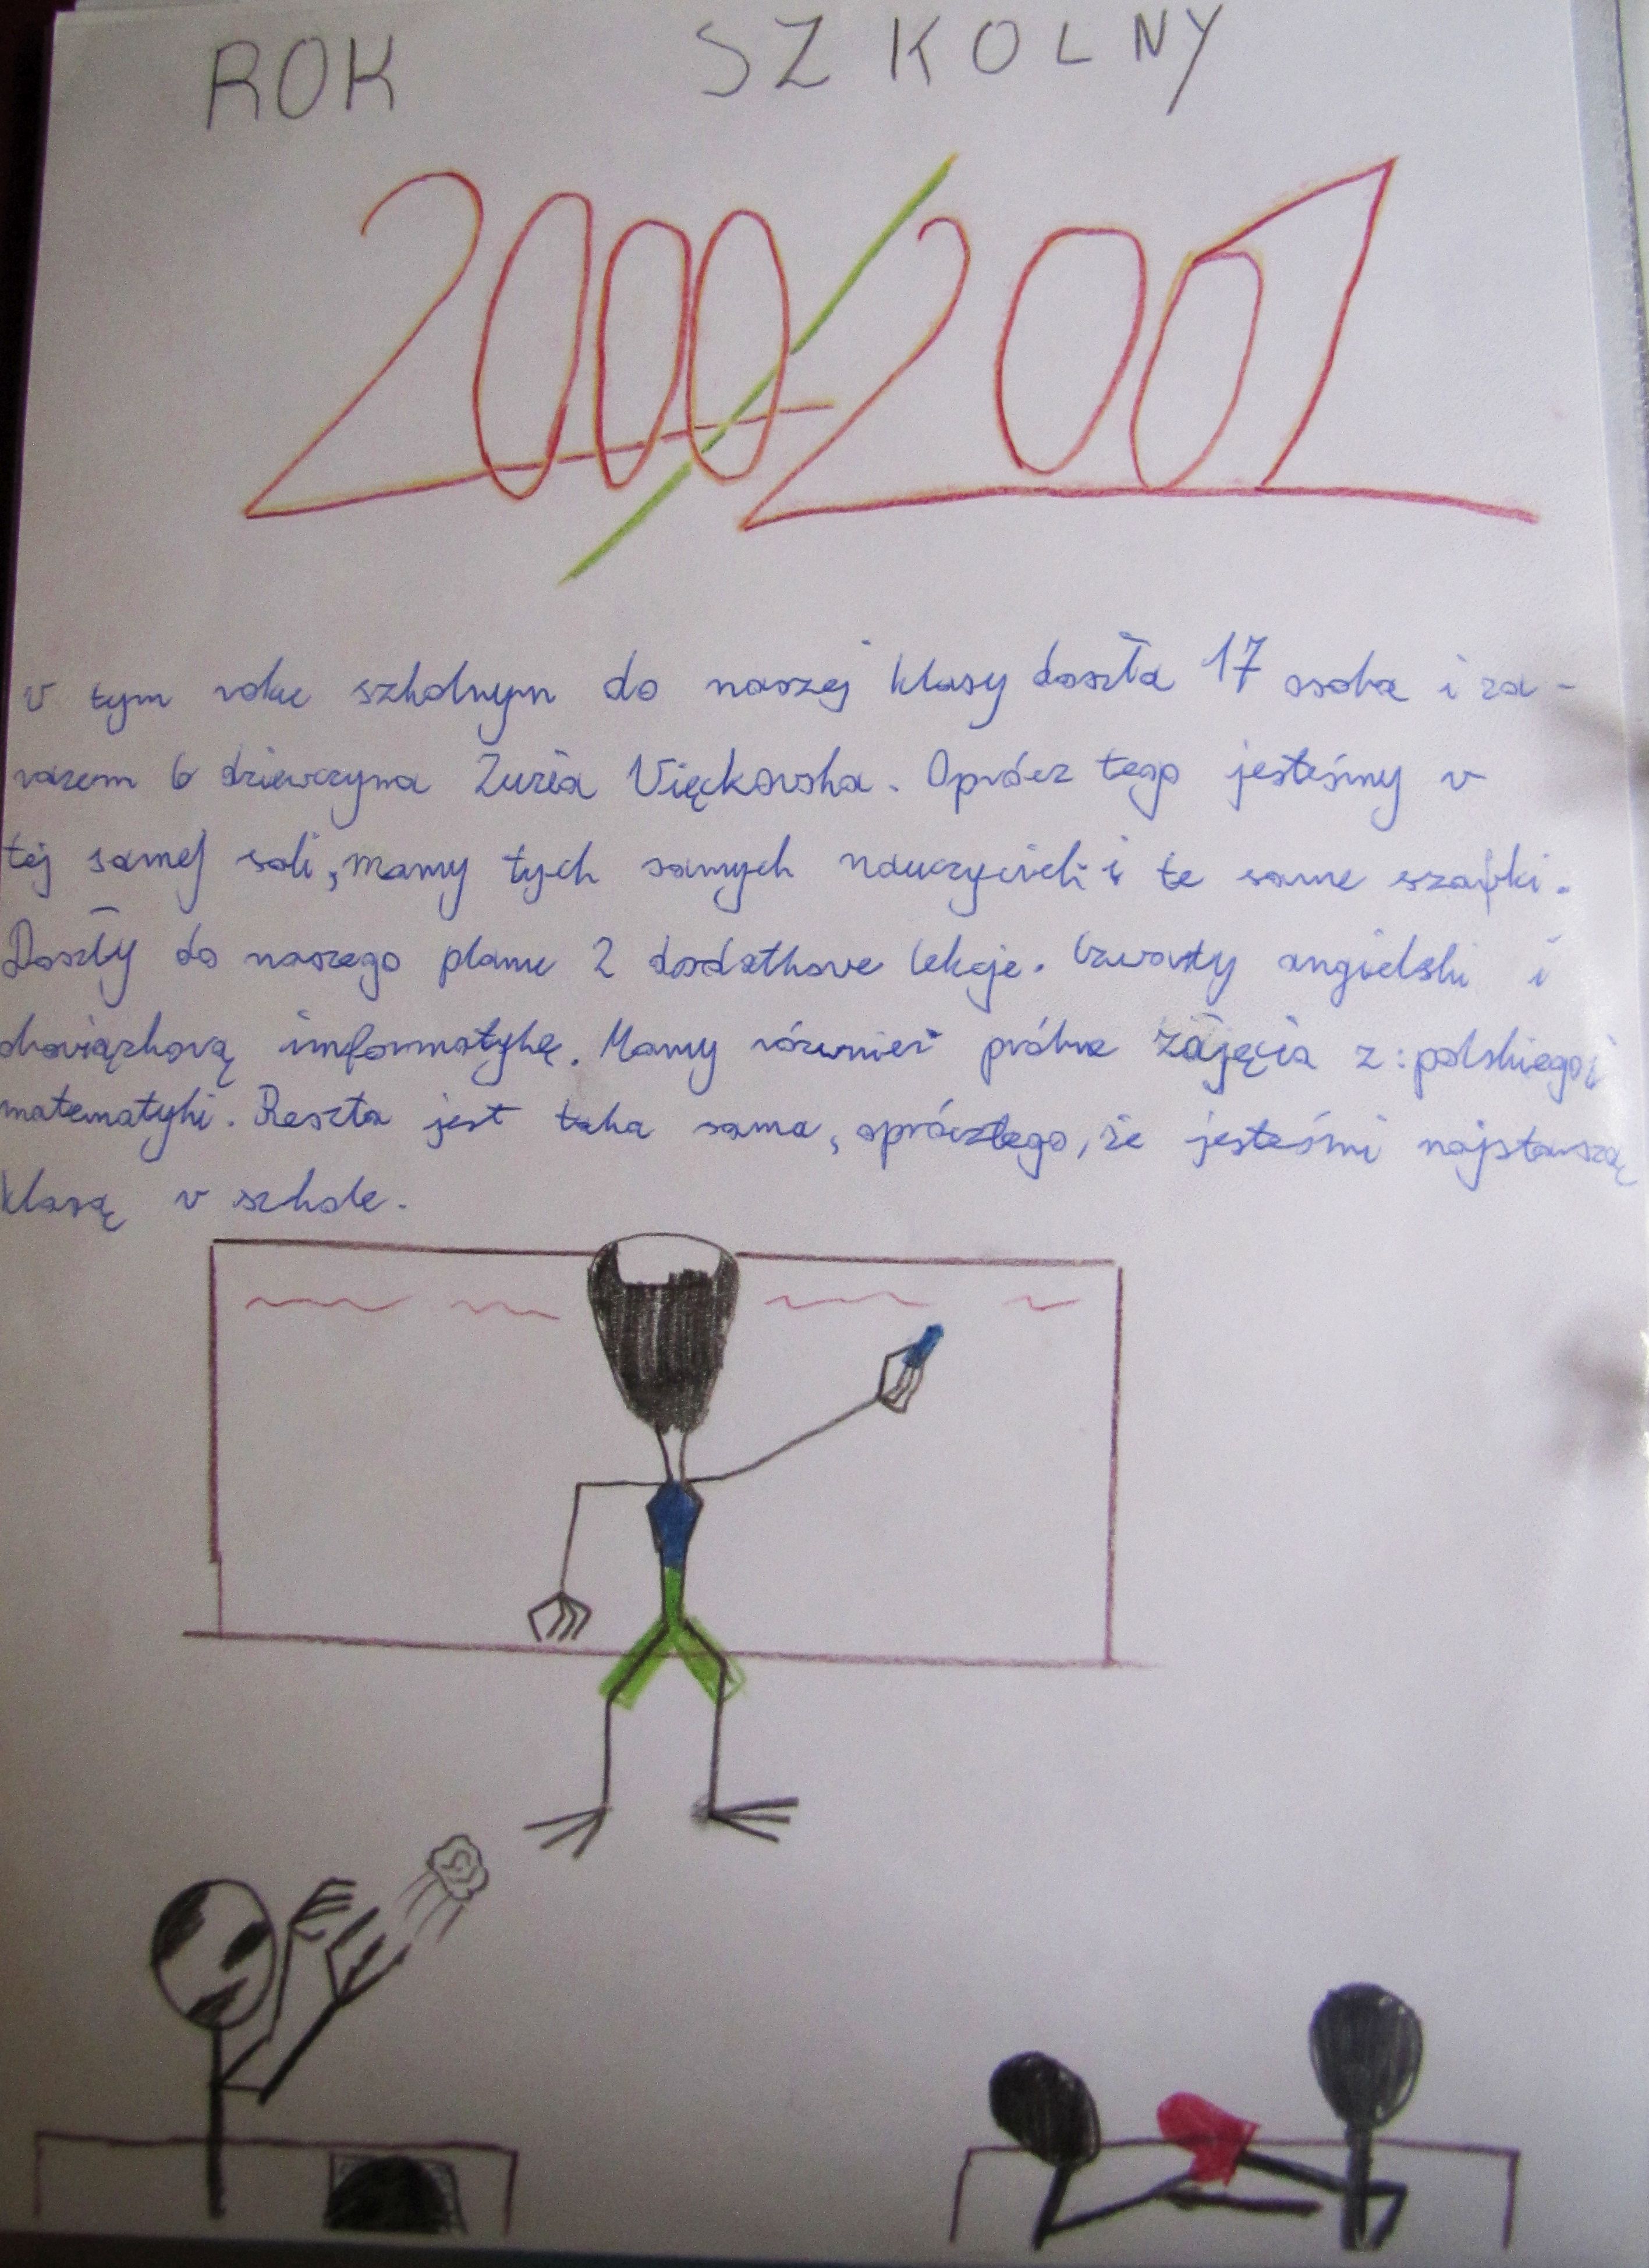 ROK SZKOLNY
2000/2001
W tym roku szkolnym do naszej klasy doszła 17 osoba i za-
razem 6 dziewczyna Zuzia Więckowska. Oprócz tego jesteśmy w
tej samej sali, mamy tych samych nauczycieli i te same szafki.
Doszły do naszego planu 2 dodatkowe lekcje. Czwarty angielski i
obowiązkową informatykę. Mamy również próbne zajęcia z: polskiego i
matematyki. Reszta jest taka sama, oprócz tego, że jesteśmi najstarszą
klasą w szkole.